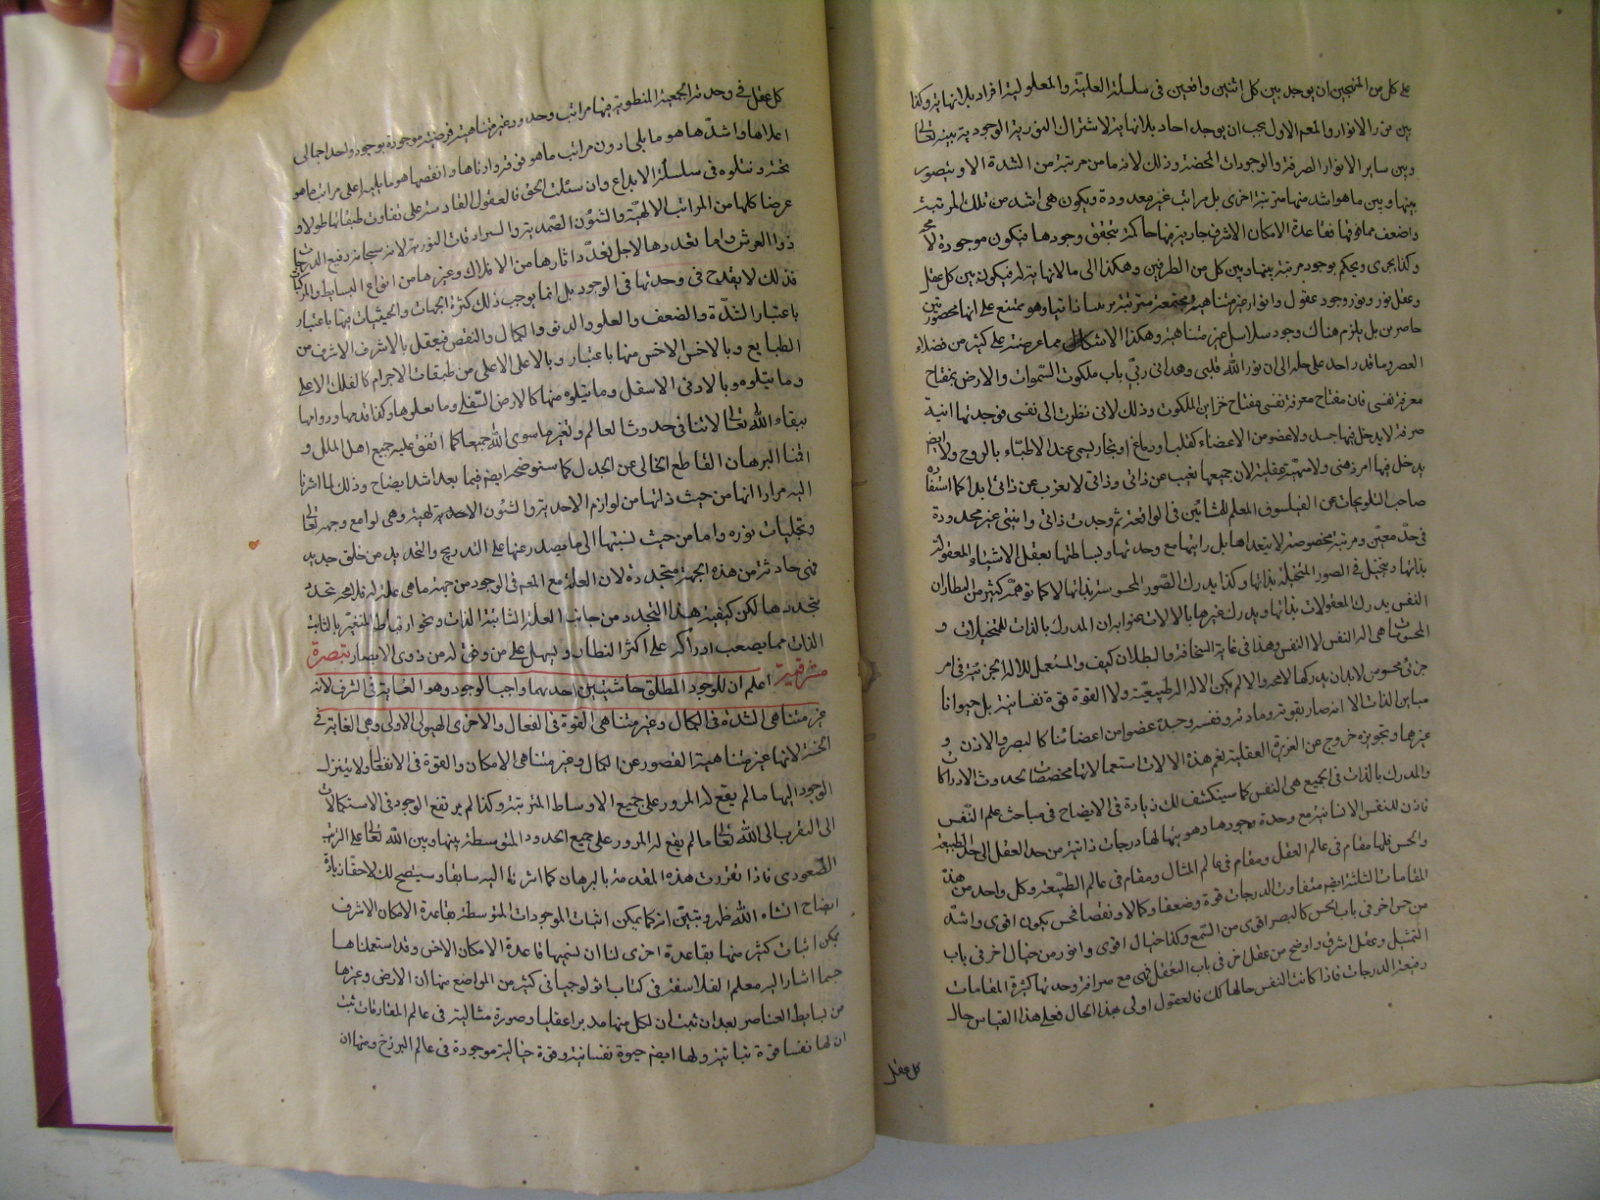 على كل من المنهجين ان يوجد بين كل اثنين واقعين فى سلسلة العلية والمعلولية افراد بلا نهاية وكذا
بين نور الانوار والمعلم الاول يجب ان يوجد احاد بلا نهاية لاشتراك النورية الوجودية بينه تعالى
وبين ساير الانوار الصرفة والوجودات المحضة وذلك لانه ما من مرتبة من الشدة الا ويتصور
بينها وبين ما هو اشد منها مرتبة اخرى بل مراتب غير معدودة ويكون هى اشد من تلك المرتبة
واضعف مما فوقها فقاعدة الامكان الاشرف جارية فيها حاكمة بتحقق وجودها فيكون موجودة لا مح
وكذا يجرى ويحكم بوجود مرتبة بينها وبين كل من الطرفين وهكذا الى ما لا نهاية له فيكون بين كل عقل
وعقل نور ونور وجود عقول وانوار غير متناهية مجتمعة مترتبة ترتبا ذاتيا وهو ممتنع على انها محصورة بين
حاصرين بل يلزم هناك وجود سلاسل غير متناهية وهكذا الاشكال مما عرضته على كثير من فضلاء
العصر وما قدر احد على حله الى ان نور الله قلبى وهدانى ربى باب ملكوت السموات والارض بمفتاح
معرفة نفسى فان مفتاح معرفة نفسى مفتاح خزاين الملكوت وذلك لانى نظرت الى نفسى فوجدتها انية
صرفة لا يدخل فيها جسد ولا عضو من الاعضاء كقلب او دماغ او بخار يسمى عند الاطباء بالروح ولا ايضا
يدخل فيها امر ذهنى ولا مهية عقلية لان جميعها يغيب عن ذاتى وذاتى لا يعزب عن ذاتى ابدا كما استفاده
صاحب التلويحات عن الفيلسوف المعلم للمشائين فى الواقعة ثم وجدت ذاتى وانيتى غير محدودة
فى حد معين ومرتبة مخصوصة لا يتعداها بل رايتها مع وحدتها وبساطتها يعقل الاشياء المعقولة
بذاتها ويتخيل فى الصور المتخيلة بذاتها وكذا يدرك الصور المحسوسة بذاتها لا كما توهمه كثير من النظار ان
النفس يدرك المعقولات بذاتها ويدرك غيرها بالالات عنوا به ان المدرك بالذات للمتخيلات و
المحسوسات هى اله النفس لا النفس وهذا فى غاية السخافة والبطلان كيف والمستعمل للالة الجزئية فى امر
جزئى محسوس لا بد ان يدركها لا محه والا لم يكن الالة الة طبيعية ولا القوة قوة نفسانية بل حيوانا
مباين الذات الانحصار بقوته ومادته ونفسه وحيدة عضو من اعضائنا كالبصر والاذن و
غيرها وتجويزه خروج عن الغريزة العقلية نعم هذه الالات استعمالاتها مخصصات بحدوث الادراكات
والمدرك بالذات فى الجميع هى النفس كما سينكشف لك زيادة فى الايضاح فى مباحث علم النفس
فاذن للنفس الانسانية مع وحدة وجودها وهويتها لها درجات ذاتية من حد العقل الى حد الطبيعة
والحس فلها مقام فى عالم العقل ومقام فى عالم المثال ومقام فى عالم الطبيعة وكل واحد من هذه
المقامات الثلثة ايضه متفاوت الدرجات قوة وضعفا وكمالا ونقصا فحس يكون اقوى واشد
من حس اخر فى باب الحس كالبصر اقوى من السمع وكذا خيال اقوى وانور من خيال اخر فى باب
التمثيل وعقل اشرف واوضح من عقل اخر فى باب التعقل فهى مع صرافة وحدتها كثيرة المقامات
رفيعة الدرجات فاذا كانت النفس حالها كك فالعقول اولى بهذا الحال فعلى هذا القياس حال
كل عقل
كل عقل فى وحدته الجمعية المنطوية فيها مراتب وحدود غير متناهية فرضية موجودة بوجود واحد اجمالى
اعلاها واشدها هو ما يلى ادون مراتب ما هو فوقه وادناها وانقصها هو ما يليه اعلى مراتب ما هو
تحته ويتلوه فى سلسلة الابداع وان سئلت الحق فالعقول القادسة على تفاوت طبقاتها طولا و
عرضا كلها من المراتب الالهية والشؤن الصمدية والسرادقات النورية لانه سبحانه رفيع الدرجات
ذوا العرش واما تعددها لاجل تعدد اثارها من الافلاك وغيرها من انواع البسايط والمركبات
فذلك لا يقدح فى وحدتها فى الوجود بل انما يوجب ذلك كثرة الجهات والحيثيات فيها باعتبار
باعتبار الشدة والضعف والعلو والدنو والكمال والنقص فيعقل بالاشرف الاشرف من
الطبايع وبالاخس الاخس منها باعتبار وبالاعلى الاعلى من طبقات الاجرام كالفلك الاعلى
وما يتلوه وبالادنى الاسفل وما يتلوه منها كالارض السفلى وما يعلوها وكذا قدمها ودوامها
ببقاء الله تعالى لا ينافى حدوث العالم وتغير ما سوى الله جميعا كما اتفق عليه جميع اهل الملل و
اقمنا البرهان القاطع الخالى عن الجدل كما سنوضحه ايضه فيما بعد اشد ايضاح وذلك لما اشرنا
اليه مرارا انها من حيث ذاتها من لوازم الاحدية والشئون الالهية وهى لوامع وجهه تعالى
وتجليات نوره واما من حيث نسبتها الى ما يصدر عنها على التدريج والتجديد من خلق جديد
فهى حادثة من هذه الجهة متجددة لان العلة مع المعه فى الوجود من جهة ما هى علة له فلا محه تتجدد
بتجددها لكن كيفية هذا التجدد من جانب العلة الثابتة الذات ونحو ارتباط المتغير بالثابت
الذات مما يصعب ادراكه على اكثر النظار ويسهل على من وفق له من ذوى الابصار تبصرة
مشرقية اعلم ان للوجود المطلق حاشيتين احدهما واجب الوجود وهو الغاية فى الشرف لانه
غير متناهى الشدة فى الكمال وغير متناهى القوة فى الفعال والاخرى الهيولى الاولى وهى الغاية فى
الخسة لانها غير متناهية القصور عن الكمال وغير متناهى الامكان والقوة فى الانفعال ولا يتنزل
الوجود اليها ما لم يقع له المرور على جميع الاوساط المترتبة وكذا لم يرتفع الوجود فى الاستكمالات
الى التقرب الى الله تعالى ما لم يقع له المرور على جميع الحدود المتوسطة بينها وبين الله تعالى على الترتيب
الصعودى فاذا تقررت هذه المقدمة بالبرهان كما اشرنا اليه سابقا وسيتضح لك لاحقا زيادة
ايضاح انشاء الله ظهر وتبين انه كما يمكن اثبات الموجودات المتوسطة بقاعدة الامكان الاشرف
يمكن اثبات كثير منها بقاعدة اخرى لنا ان نسميها قاعدة الامكان الاخس وقد استعملناها
حسبما اشار اليه معلم الفلاسفة فى كتاب اثولوجيا فى كثير من المواضع منها ان الارض وغيرها
من بسايط العناصر بعد ان ثبت ان لكل منها مدبرا عقليا وصورة مثالية فى عالم المفارقات ثبت
ان لها نفسا وقوة نباتية ولها ايضه حيوة نفسانية وقوة خيالية موجودة فى عالم البرزخ ومنها ان